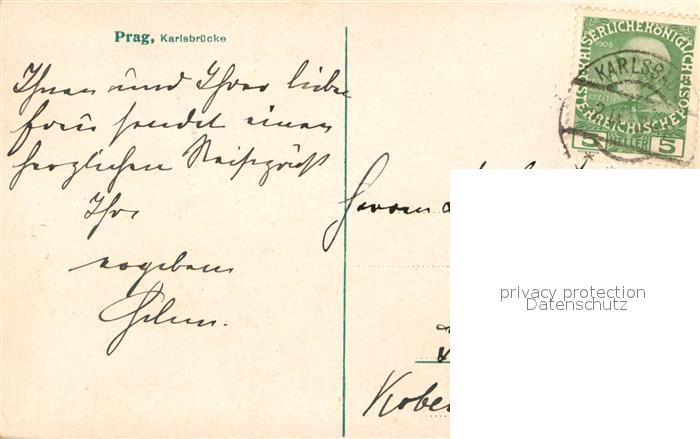 Prag, Karlsbrücke
Ihnen und Ihrer lieben
Frau sendet einen
herzlichen Reisegruß
Ihr
ergebener
Herrn
Kobe
KAISERLICHE KÖNIGLICHE ÖSTERREICHISCHE POST
1908
5 HELLER 5
KARLSB
privacy protection
Datenschutz